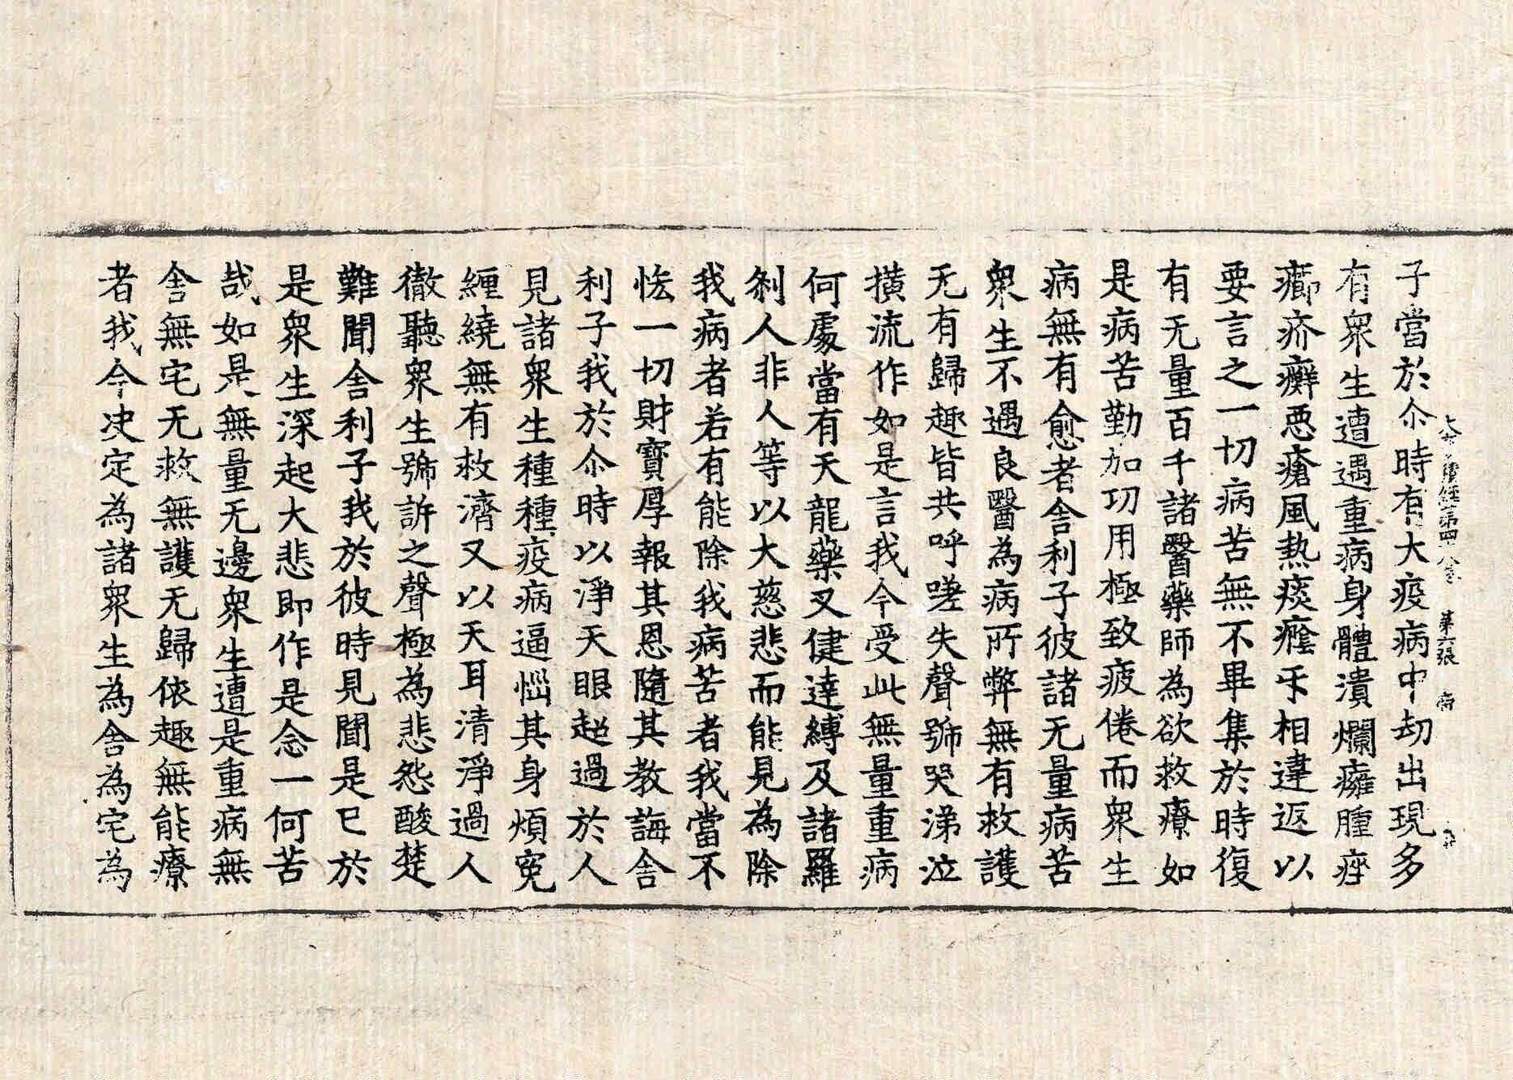 經第四 第六張
子當於尒時有大疫病中劫出現多
有衆生遭遇重病身體潰爛癰腫痤
癤疥癬惡瘡風熱痰癊㸦相違返以
要言之一切病苦無不畢集於時復
有无量百千諸醫藥師為欲救療如
是病苦勤加功用極致疲倦而衆生
病無有愈者舍利子彼諸无量病苦
衆生不遇良醫為病所弊無有救護
无有歸趣皆共呼嗟失聲號哭涕泣
橫流作如是言我今受此無量重病
何處當有天龍藥叉健達縛及諸羅
刹人非人等以大慈悲而能見為除
我病者若有能除我病苦者我當不
恡一切財寶厚報其恩隨其教誨舍
利子我於尒時以淨天眼超過於人
見諸衆生種種疫病逼惱其身煩冤
纏繞無有救濟又以天耳清淨過人
徹聽衆生號訴之聲極為悲怨酸楚
難聞舍利子我於彼時見聞是已於
是衆生深起大悲即作是念一何苦
哉如是無量无邊衆生遭是重病無
舍無宅无救無護无歸依趣無能療
者我今决定為諸衆生為舍為宅為